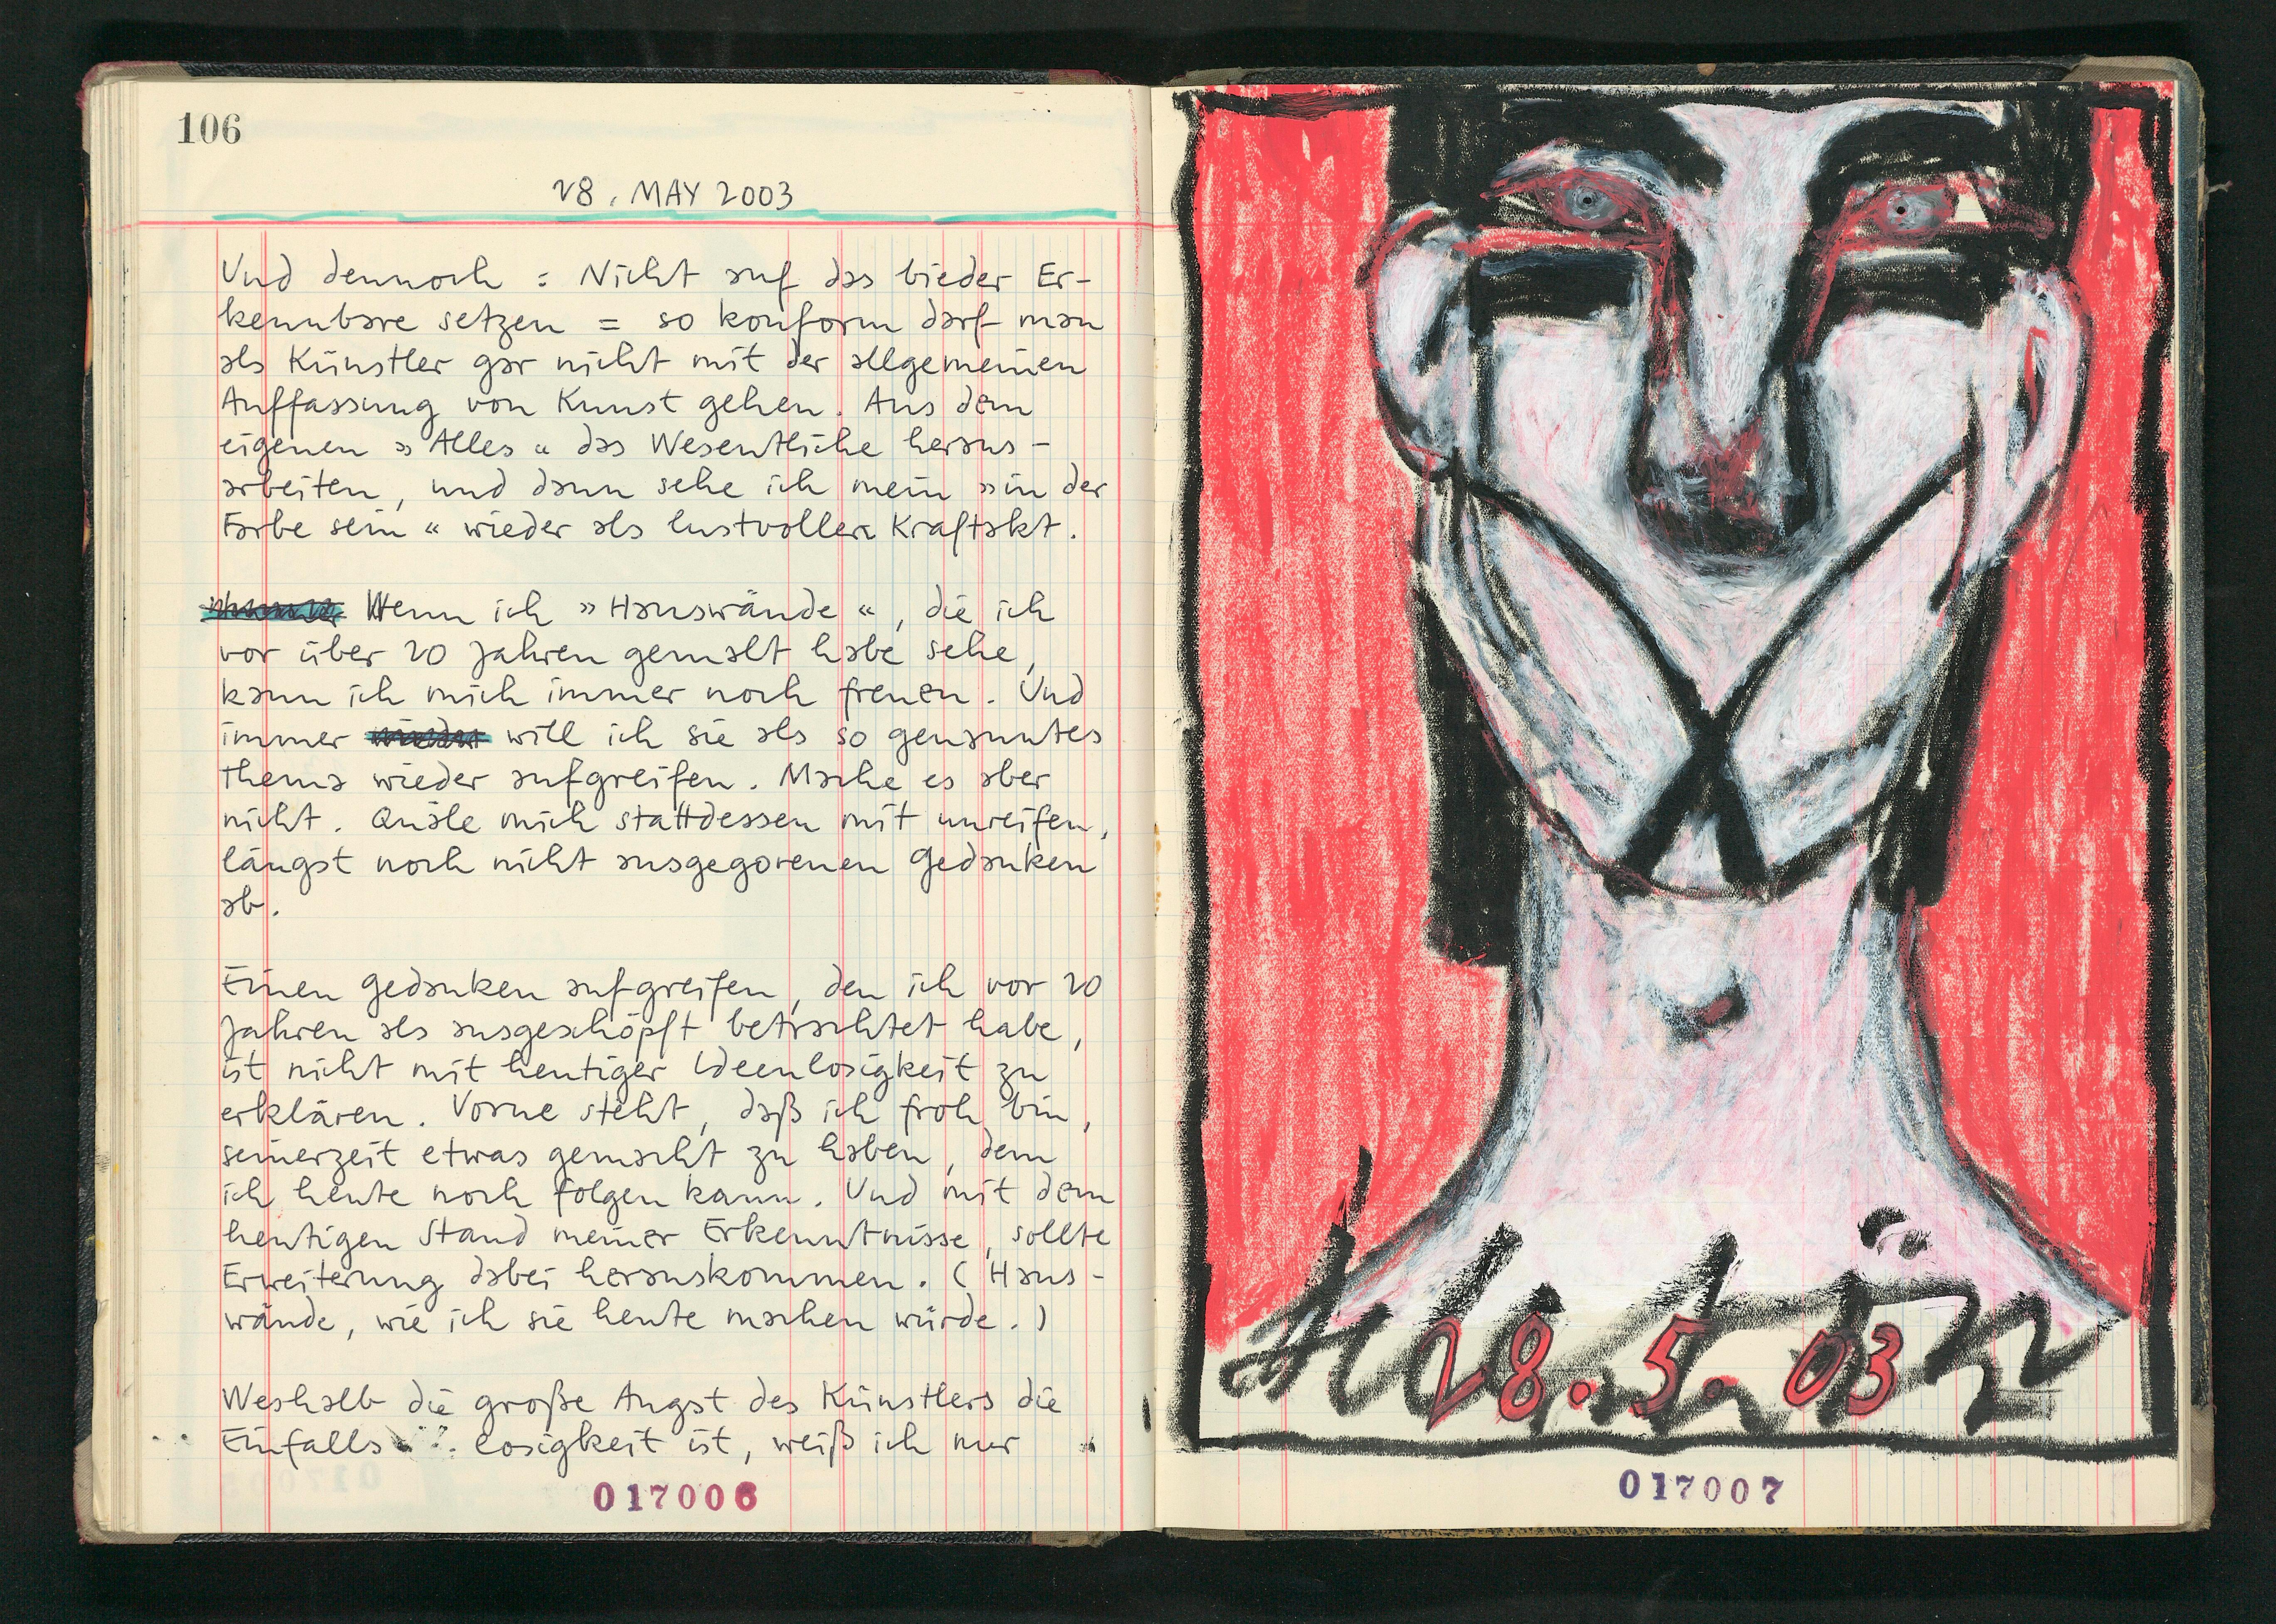 106
28. MAY 2003
Und dennoch : Nicht auf das bieder Er-
kennbare setzen = so konform darf man
als Künstler gar nicht mit der allgemeinen
Auffassung von Kunst gehen. Aus dem
eigenen »Alles« das Wesentliche heraus-
arbeiten, und dann sehe ich mein »in der
Farbe sein« wieder als lustvollen Kraftakt.
Wenn ich »Hauswände«, die ich
vor über 20 Jahren gemalt habe sehe,
kann ich mich immer noch freuen. Und
immer will ich sie als so genanntes
Thema wieder aufgreifen. Mache es aber
nicht. Quäle mich stattdessen mit unreifen,
längst noch nicht ausgegorenen Gedanken
ab.
Einen Gedanken aufgreifen, den ich vor 20
Jahren als ausgeschöpft betrachtet habe,
ist nicht mit heutiger Ideenlosigkeit zu
erklären. Vorne steht, daß ich froh bin,
seinerzeit etwas gemacht zu haben, dem
ich heute noch folgen kann. Und mit dem
heutigen Stand meiner Erkenntnisse, sollte
Erweiterung dabei herauskommen. (Haus-
wände, wie ich sie heute machen würde.)
Weshalb die große Angst des Künstlers die
Einfallslosigkeit ist, weiß ich nur
017006
28.5.03
017007